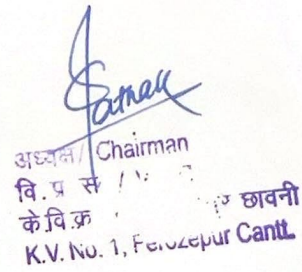 अध्यक्ष/ Chairman
वि. प्र स /
के.वि.क्र छावनी
K.V. No. 1, Ferozepur Cantt.